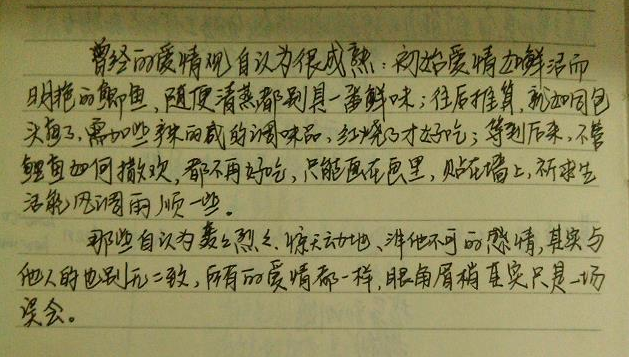 曾经的爱情观自认为很成熟：初始爱情如鲜活而
明艳的鲫鱼，随便清蒸都别具一番鲜味；往后推算，就如同包
头鱼了，需加些辣的咸的调味品，红烧了才好吃；等到后来，不管
鲤鱼如何撒欢，都不再好吃，只能画在画里，贴在墙上，祈求生
活能风调雨顺一些。
那些自认为轰轰烈烈、惊天动地、非他不可的感情，其实与
他人的也别无二致，所有的爱情都一样，眼角眉梢其实只是一场
误会。